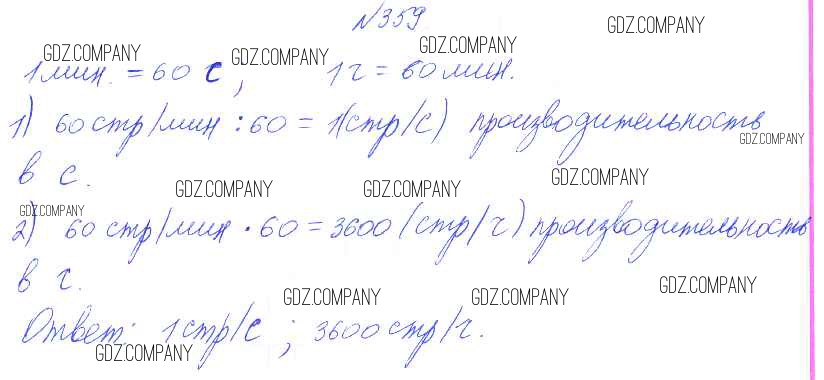 №359
GDZ.COMPANY GDZ.COMPANY GDZ.COMPANY GDZ.COMPANY
1 мин. = 60 с, 1 г = 60 мин.
1) 60 стр/мин : 60 = 1(стр/с) производительность
GDZ.COMPANY
в с.
GDZ.COMPANY GDZ.COMPANY GDZ.COMPANY
GDZ.COMPANY
2) 60 стр/мин · 60 = 3600 (стр/ч) производительность
в г.
GDZ.COMPANY GDZ.COMPANY GDZ.COMPANY
Ответ: 1 стр/с ; 3600 стр/ч.
GDZ.COMPANY